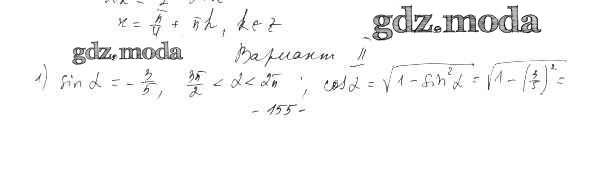 x = π/4 + πk, k∈Z
gdz.moda
gdz.moda
Вариант II
1) sin α = -3/5, 3π/2 < α < 2π ; cos α = √(1 - sin²α) = √(1 - (3/5)²) =
- 155 -